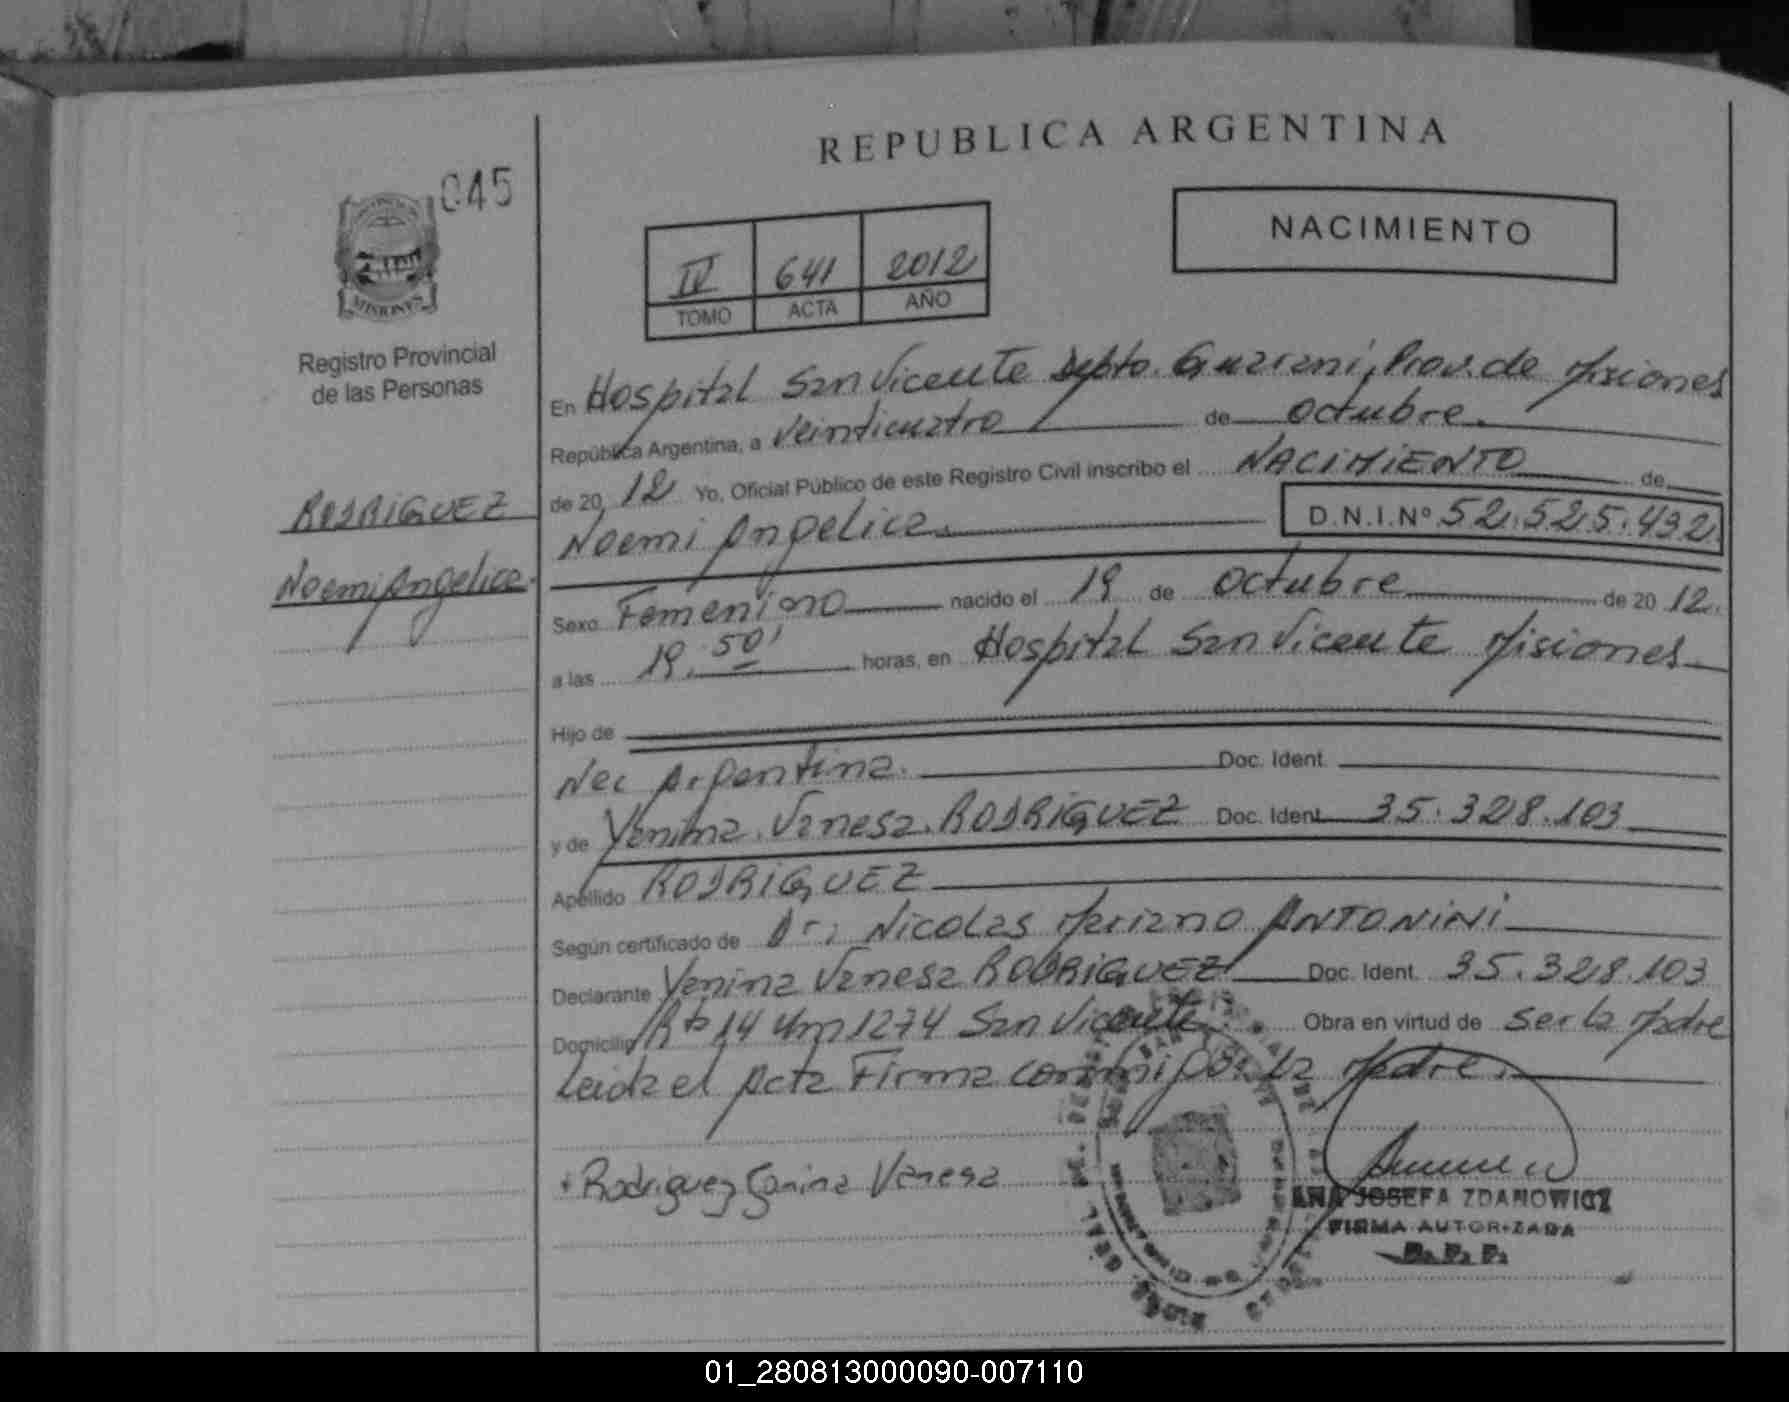 REPUBLICA ARGENTINA
045
NACIMIENTO
IV 641 2012
TOMO ACTA AÑO
MISIONES
Registro Provincial
de las Personas
En Hospital San Vicente Depto. Guarani, Prov. de Misiones
República Argentina, a veinticuatro de octubre.
de 20 12 Yo, Oficial Público de este Registro Civil inscribo el NACIMIENTO de
RODRIGUEZ
Noemi Angelica.
Noemi Angelica. D.N.I.Nº 52.525.432
Sexo Femenino nacido el 19 de octubre de 20 12.
a las 19.50' horas, en Hospital San Vicente Misiones
Hijo de
Nac Argentina. Doc. Ident.
y de Yanina Vanesa RODRIGUEZ Doc. Ident. 35.328.103
Apellido RODRIGUEZ
Según certificado de Dr; Nicolas Mariano ANTONINI
Declarante Yanina Vanesa RODRIGUEZ Doc. Ident. 35.328.103
Domicilio Rta 14 Km 1274 San Vicente. Obra en virtud de ser la Madre
Leida el Acta Firma conmigo la Madre.
+ Rodriguez Yanina Vanesa
ANA JOSEFA ZDANOWICZ
FIRMA AUTORIZADA
R. P. P.
01_280813000090-007110